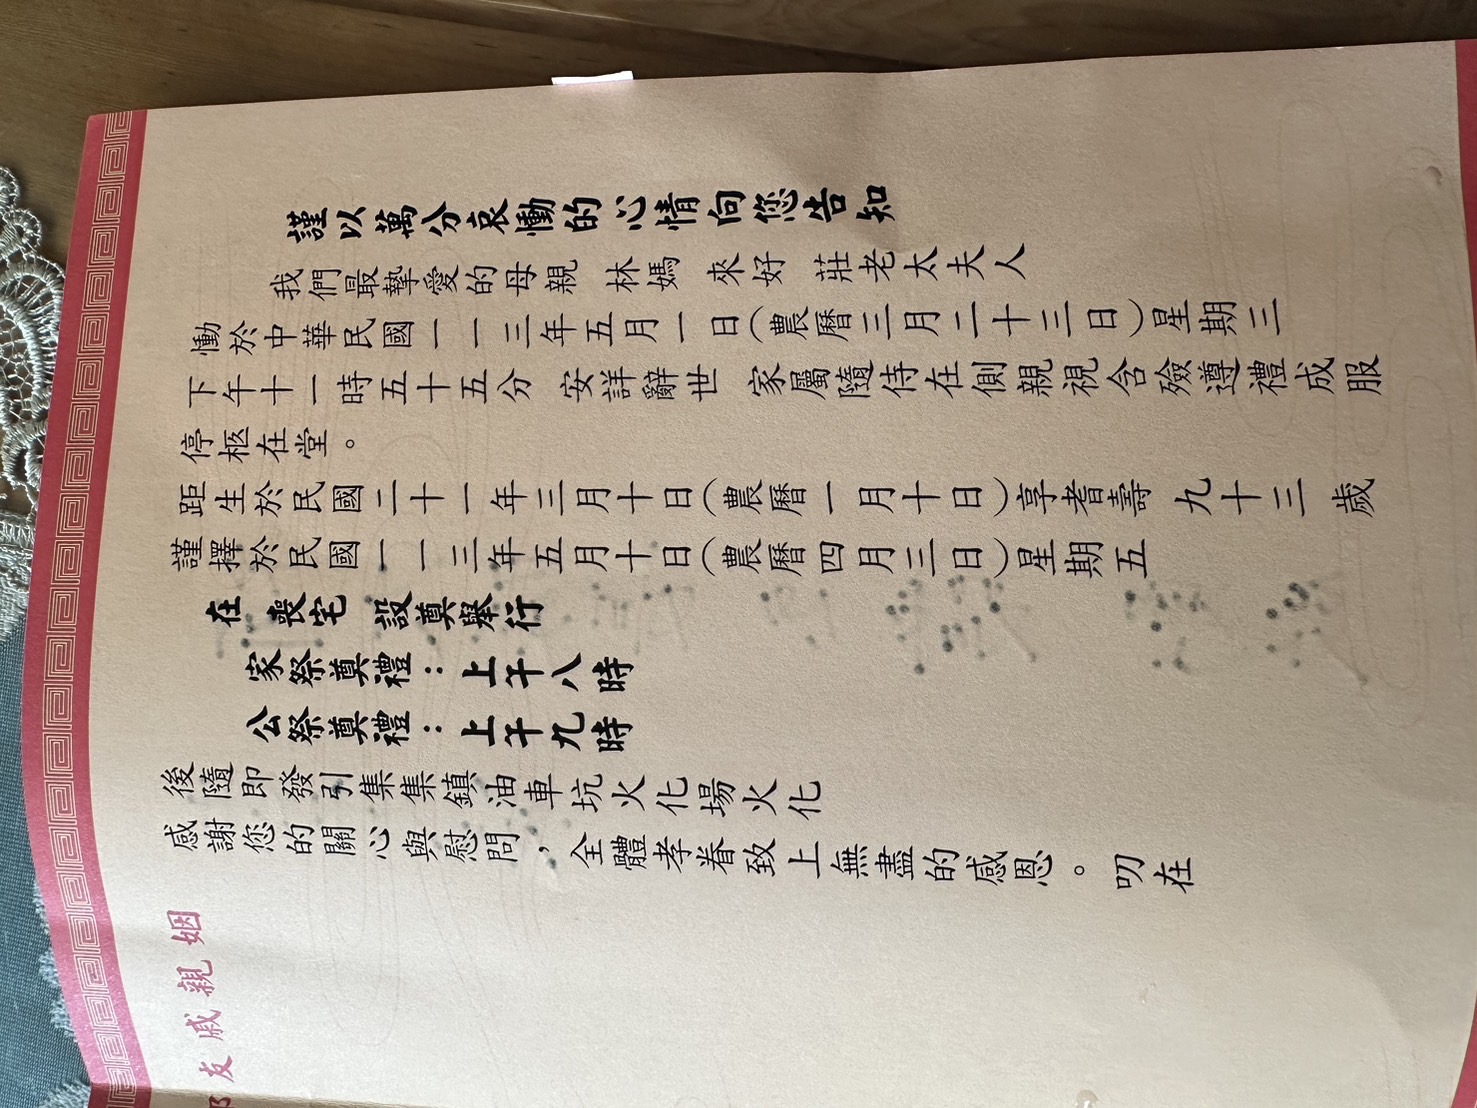 謹以萬分哀慟的心情向您告知
我們最摯愛的母親 林媽 來好 莊老太夫人
慟於中華民國一一三年五月一日(農曆三月二十三日)星期三
下午十一時五十五分 安詳辭世 家屬隨侍在側親視含殮遵禮成服
停柩在堂。
距生於民國二十一年三月十日(農曆一月十日)享耆壽 九十三 歲
謹擇於民國一一三年五月十日(農曆四月三日)星期五
在 喪宅 設奠舉行
家祭奠禮：上午八時
公祭奠禮：上午九時
後隨即發引集集鎮油車坑火化場火化
感謝您的關心與慰問，全體孝眷致上無盡的感恩。 叨在
姻親戚友